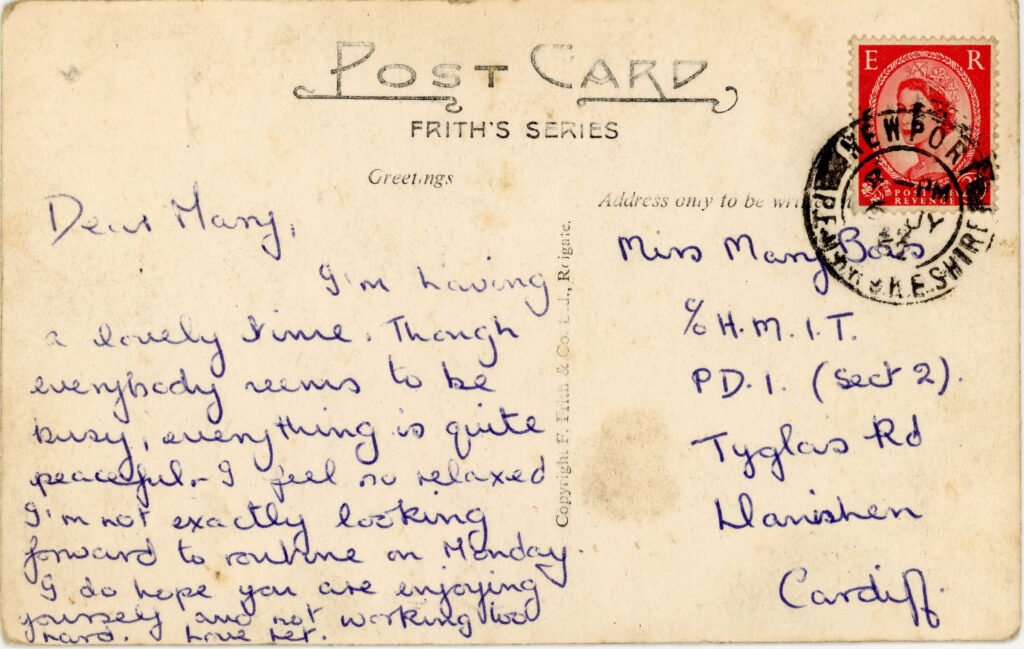 POST CARD
FRITH'S SERIES
Greetings
Address only to be
E R
POSTAGE
REVENUE
NEWPORT
PEMBROKESHIRE
-PM
JY
Copyright F. Frith & Co. Ltd., Reigate.
Dear Mary,
I'm having
a lovely time. Though
everybody seems to be
busy, everything is quite
peaceful - I feel so relaxed
I'm not exactly looking
forward to routine on Monday.
I do hope you are enjoying
yourself and not working too
hard. Love
Miss Mary
c/o H.M.I.T.
P.D.1. (Sect 2).
Tyglas Rd
Llanishen
Cardiff.